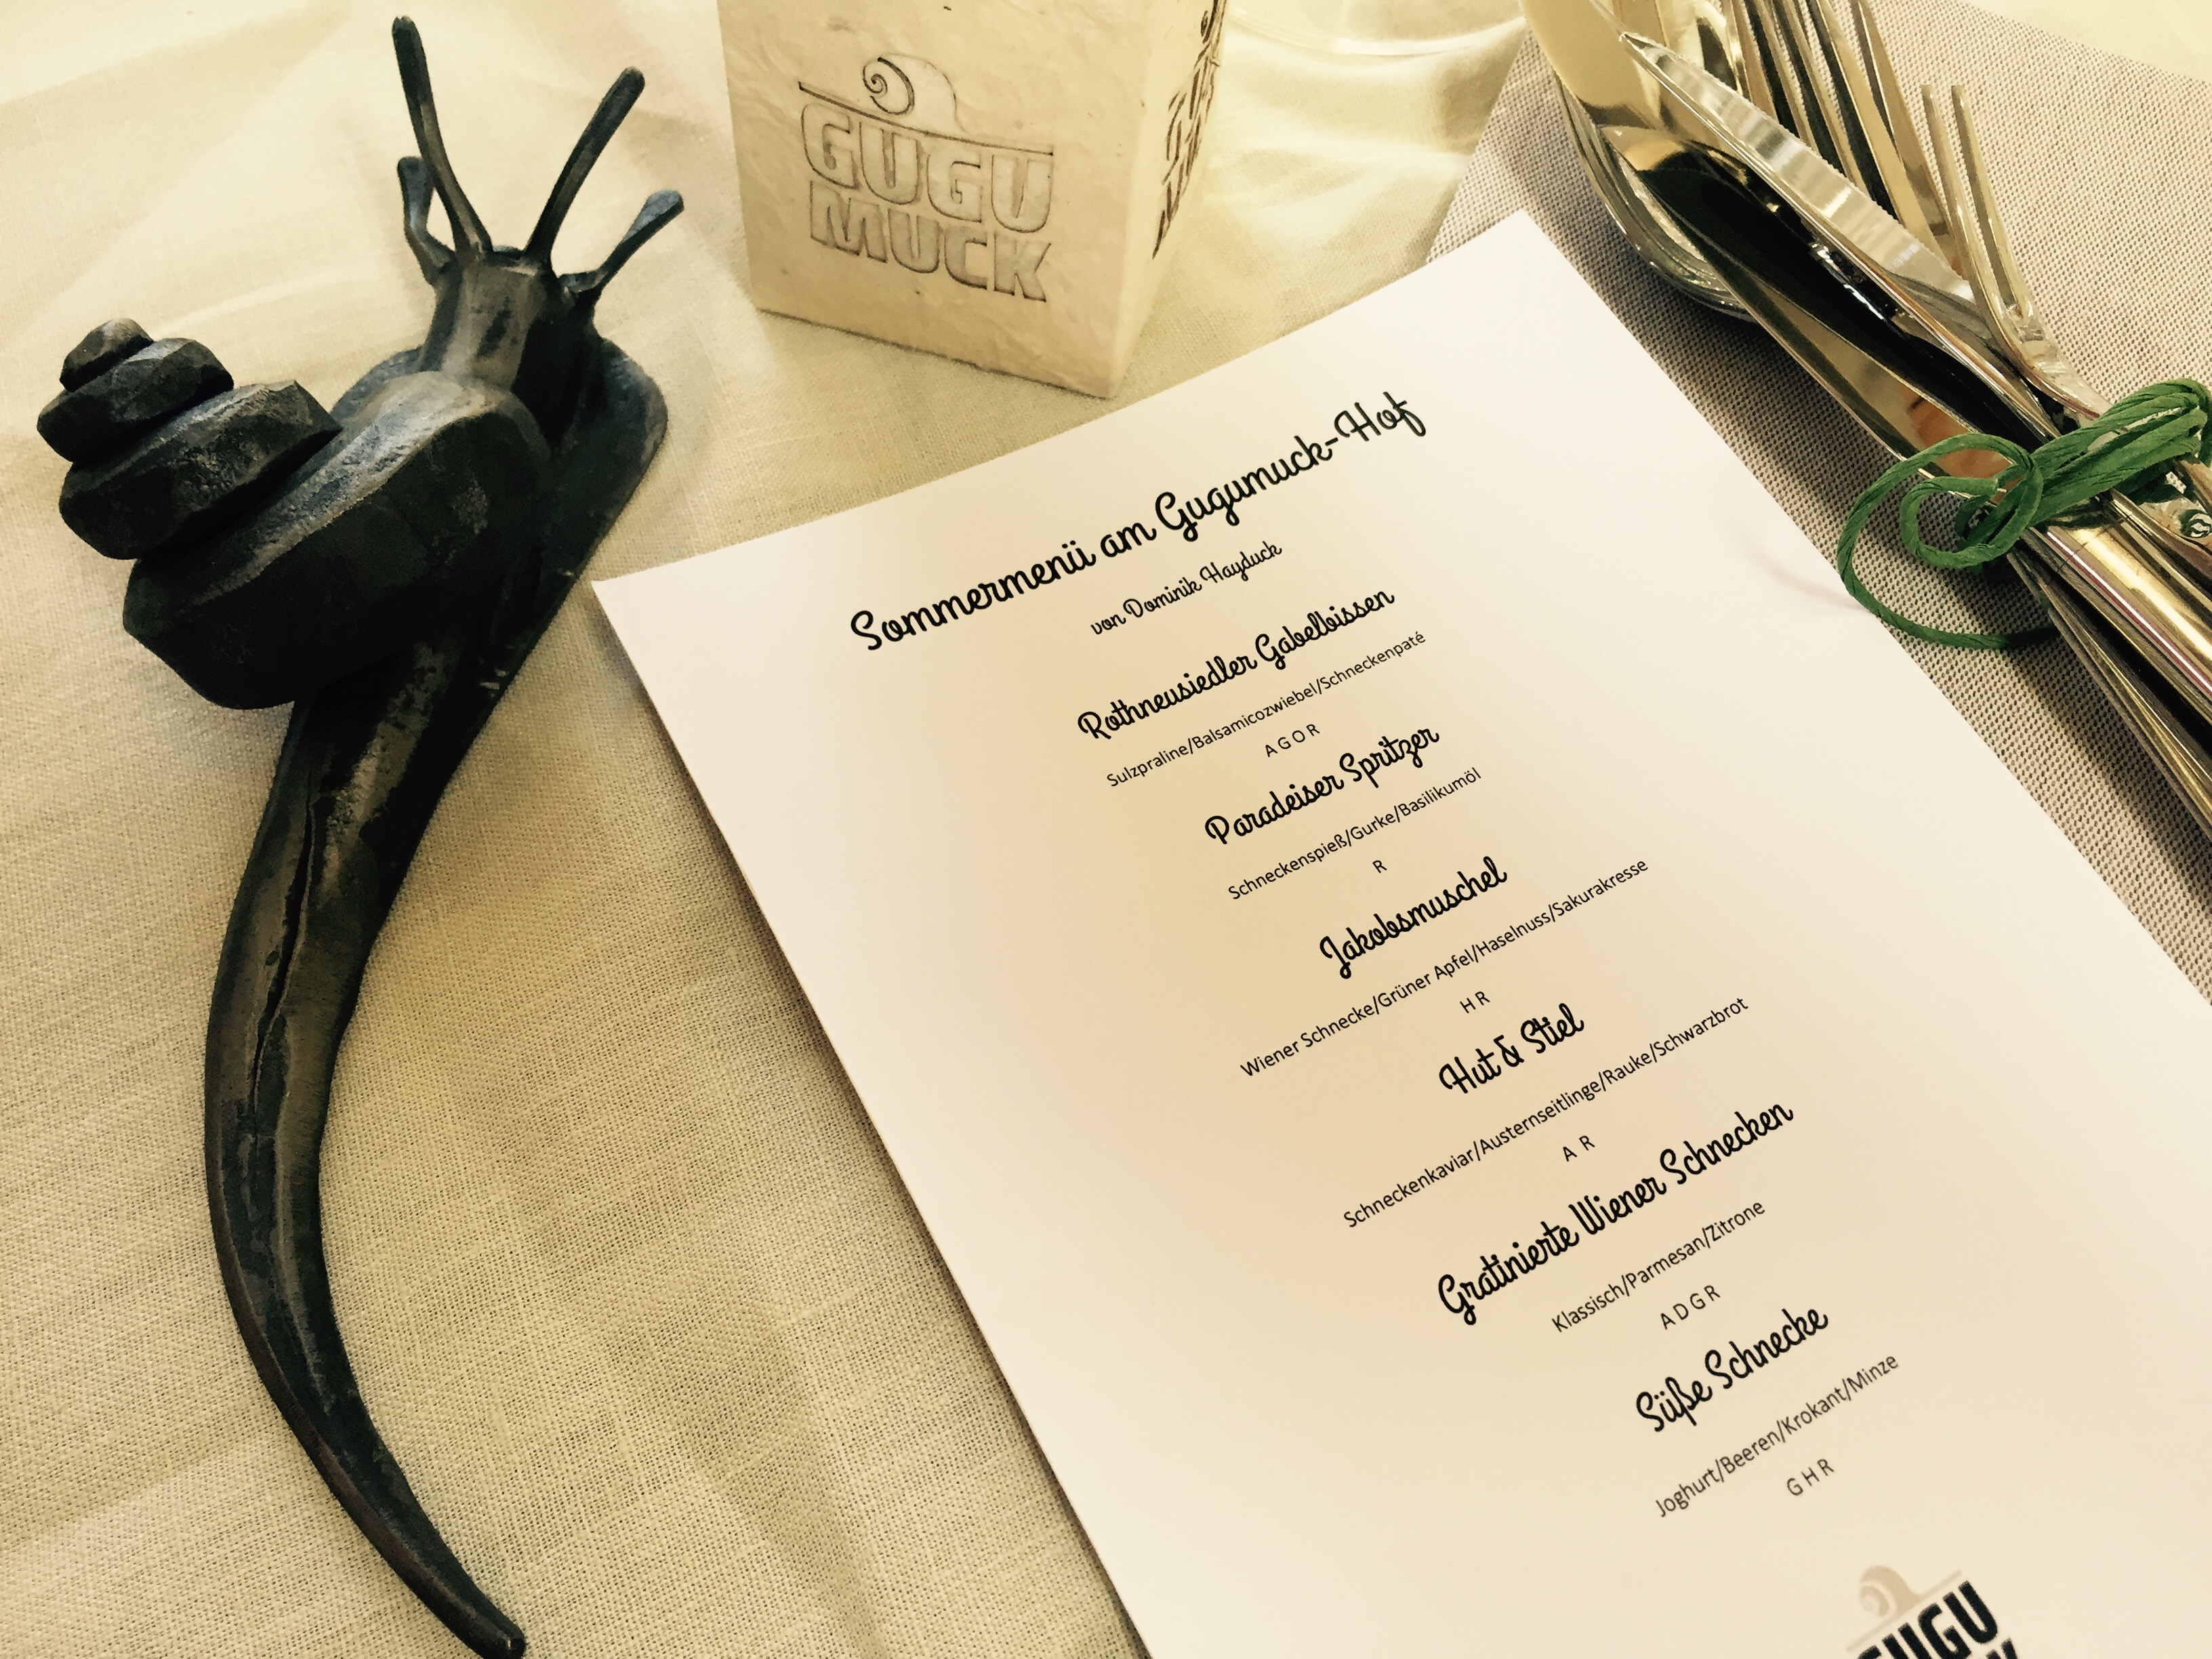 GUGU
MUCK
Sommermenü am Gugumuck-Hof
von Dominik Hayduck
Rothneusiedler Gabelbissen
Sulzpraline/Balsamicozwiebel/Schneckenpaté
A G O R
Paradeiser Spritzer
Schneckenspieß/Gurke/Basilikumöl
R
Jakobsmuschel
Wiener Schnecke/Grüner Apfel/Haselnuss/Sakurakresse
H R
Hut & Stiel
Schneckenkaviar/Austernseitlinge/Rauke/Schwarzbrot
A R
Gratinierte Wiener Schnecken
Klassisch/Parmesan/Zitrone
A D G R
Süße Schnecke
Joghurt/Beeren/Krokant/Minze
G H R
GUGU